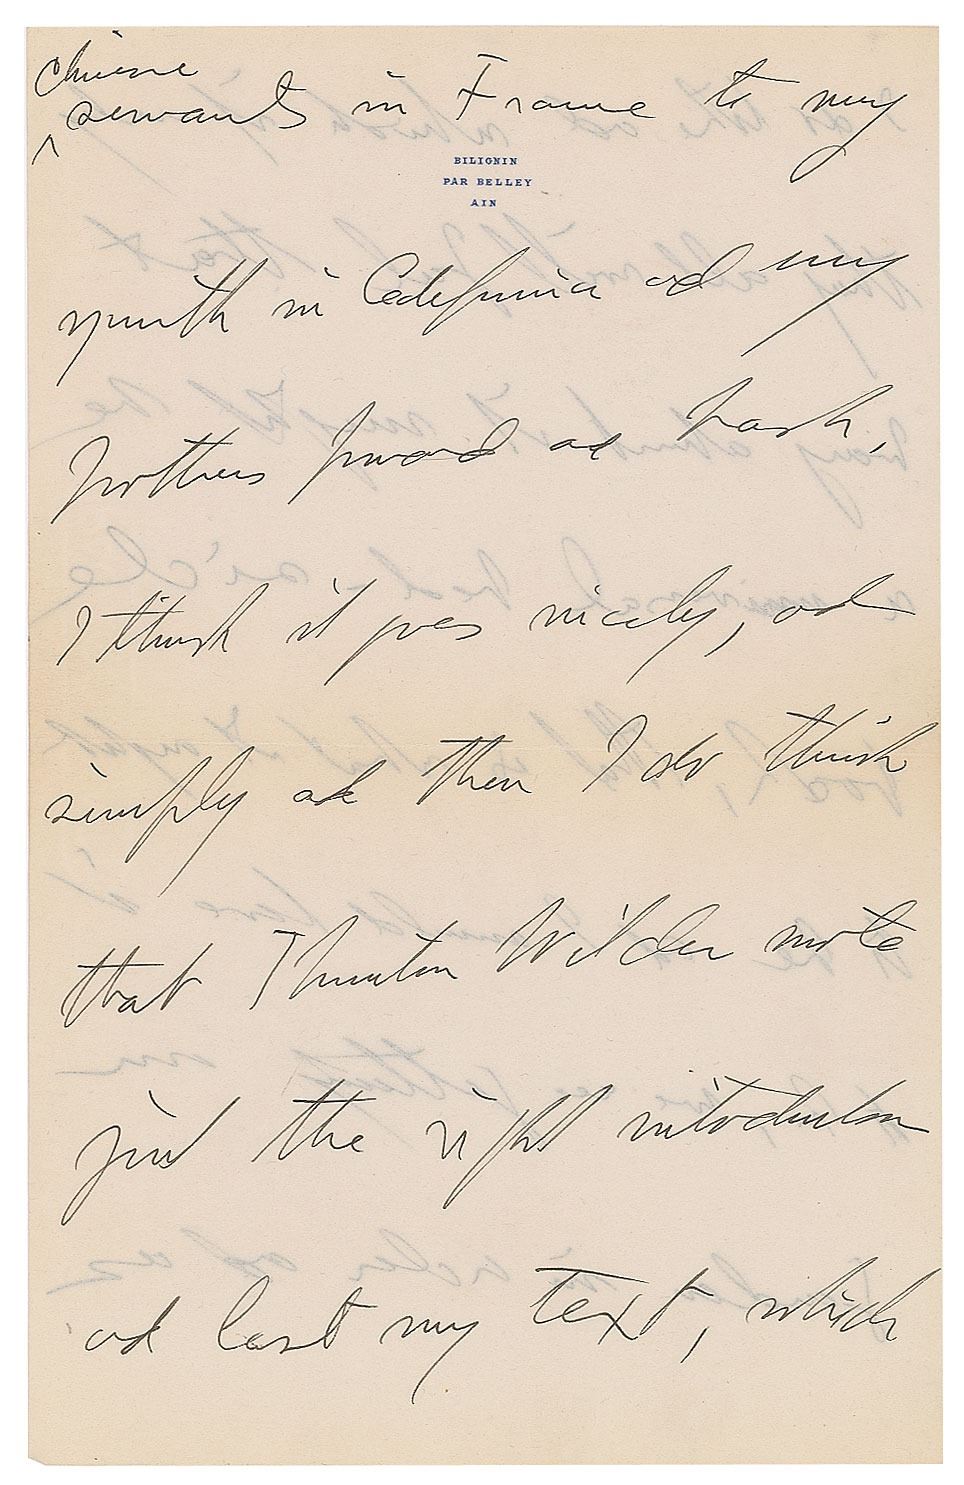 Chinese
servants in France to my
BILIGNIN
PAR BELLEY
AIN
youth in California and my
brothers forward and back,
I think it goes nicely, and
simply and then I do think
that Thornton Wilder wrote
just the right introduction
and last my text, which